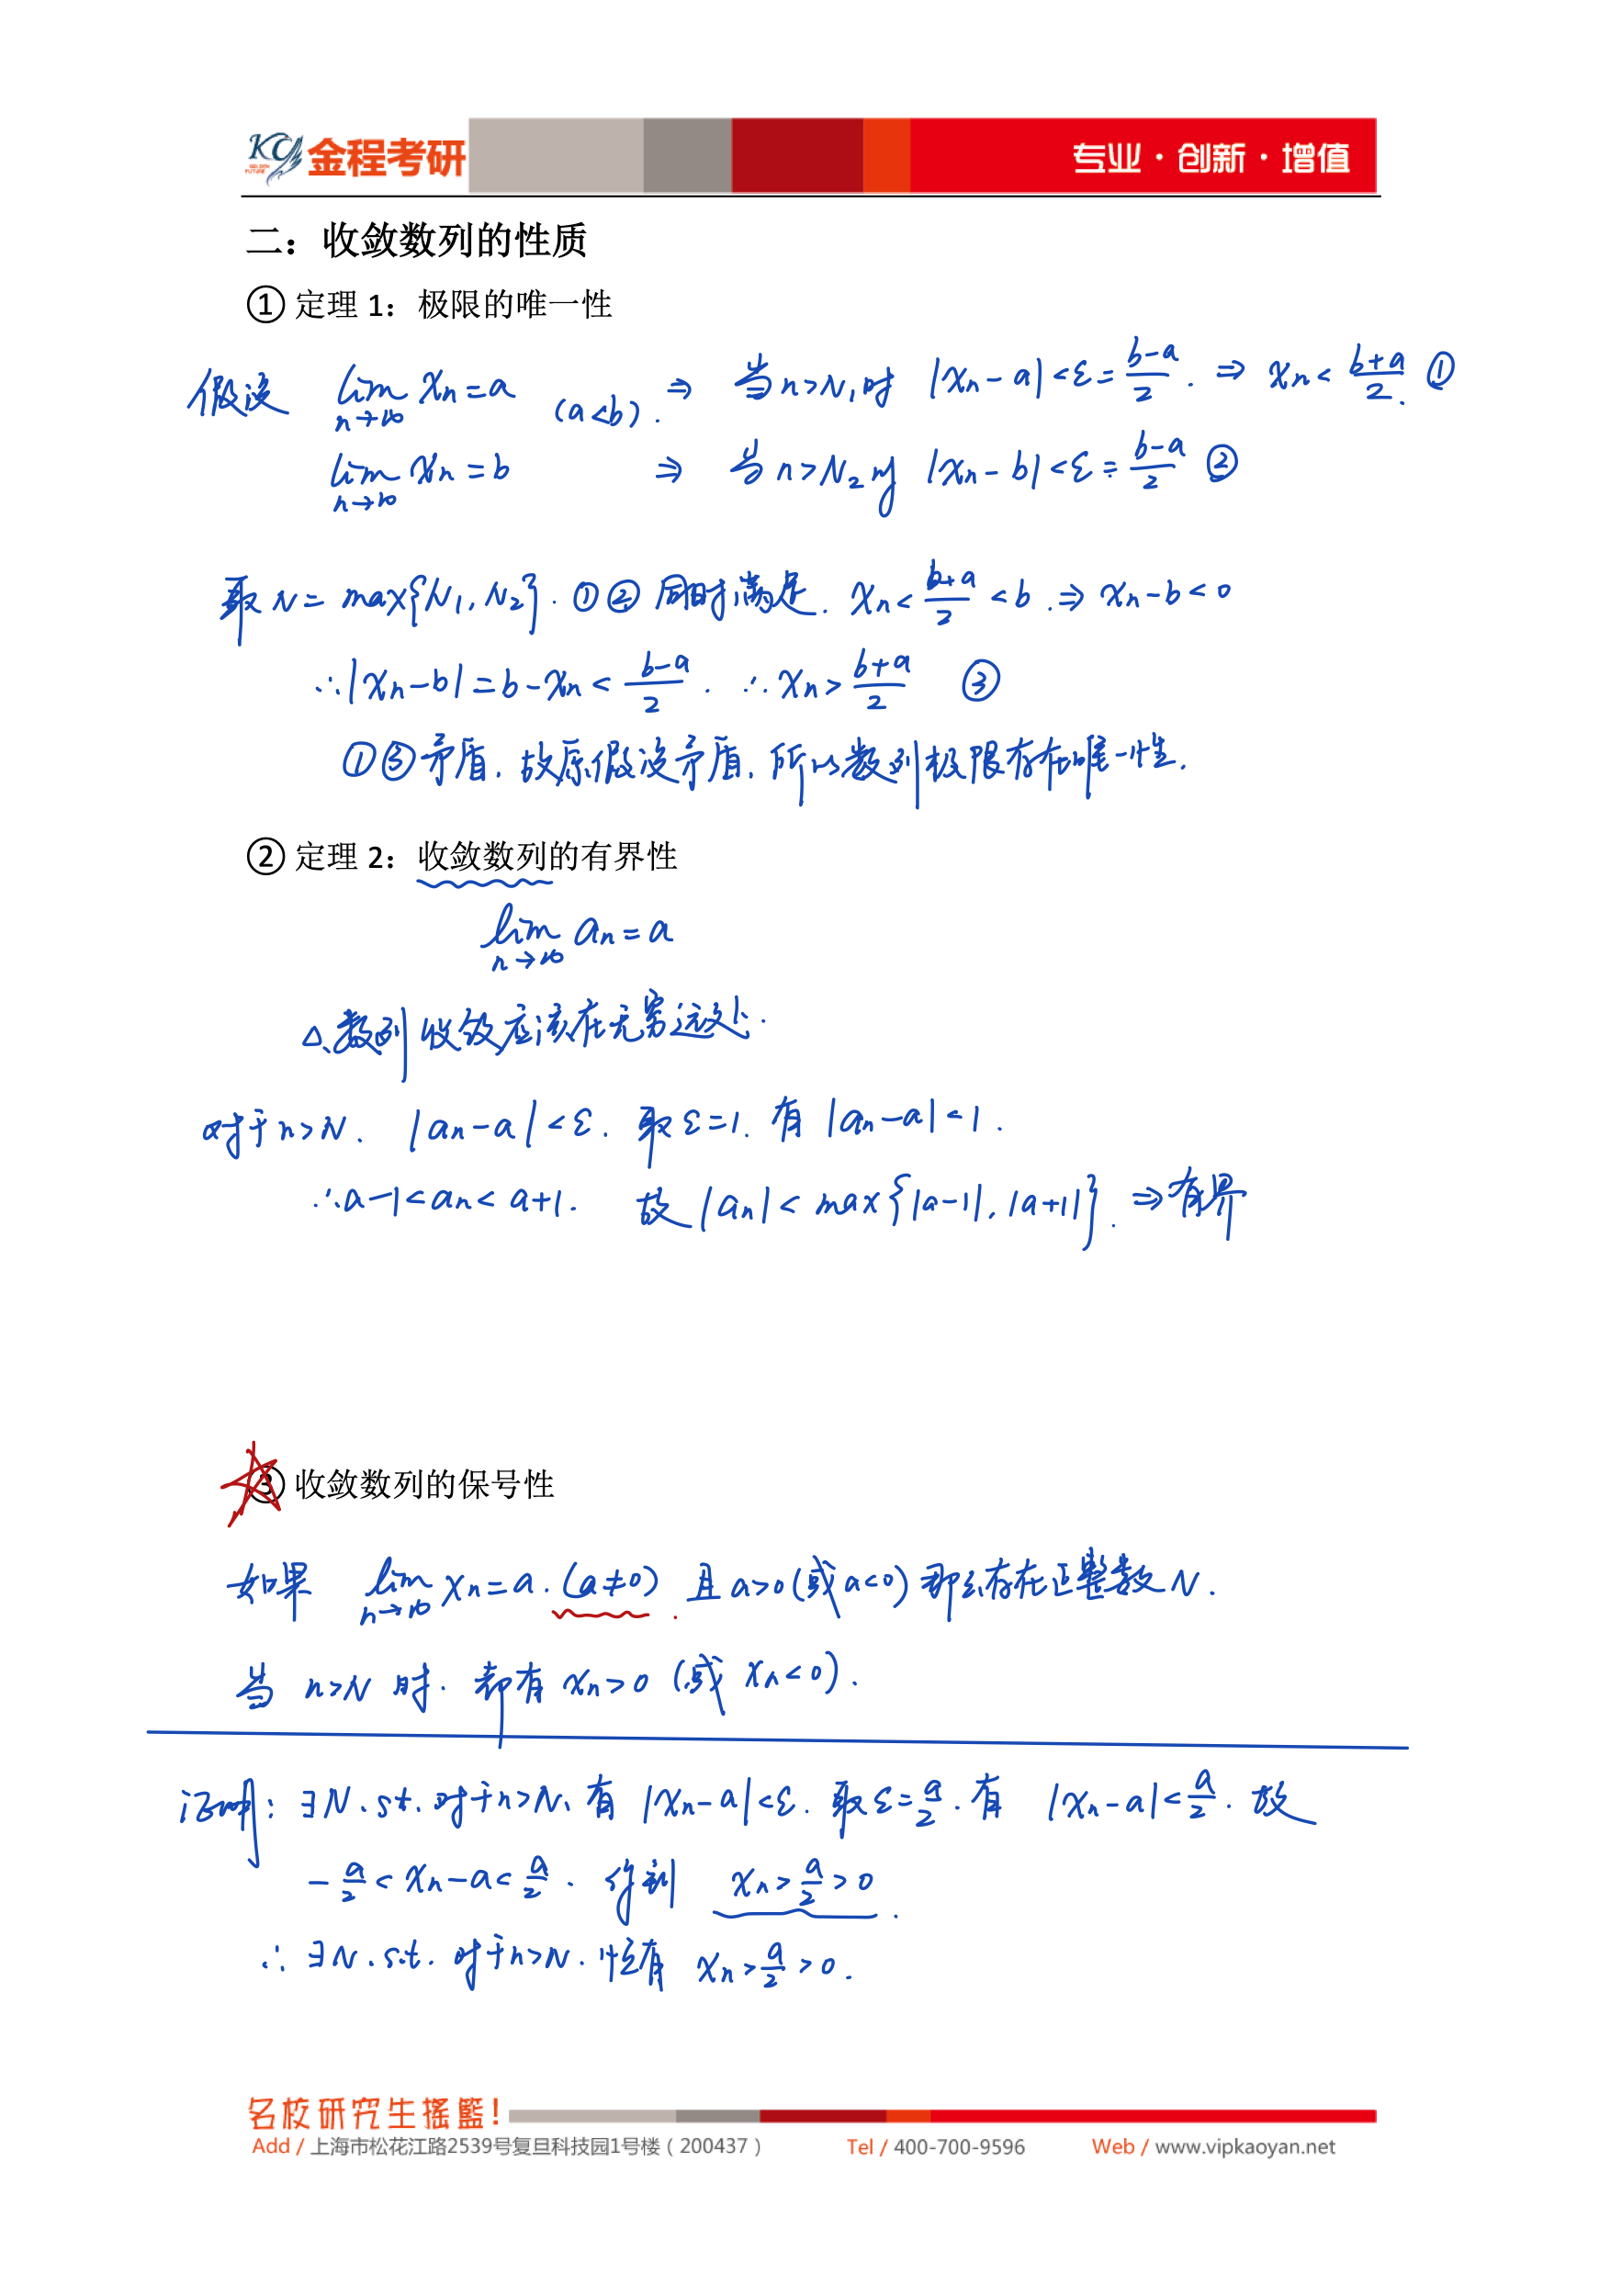 KC GOLDEN FUTURE 金程考研 专业·创新·增值
二：收敛数列的性质
① 定理 1：极限的唯一性
假设 lim_{n→∞} xₙ = a (a<b). ⇒ 当 n>N₁时 |xₙ-a|<ε=(b-a)/2. ⇒ xₙ<(b+a)/2. ①
lim_{n→∞} xₙ = b ⇒ 当 n>N₂时 |xₙ-b|<ε=(b-a)/2 ②
取 N = max{N₁, N₂}. ①② 同时满足. xₙ<(b+a)/2<b. ⇒ xₙ-b<0
∴|xₙ-b|=b-xₙ<(b-a)/2. ∴xₙ>(b+a)/2 ③
①③矛盾. 故原假设矛盾. 所以数列极限存在唯一性.
② 定理 2：收敛数列的有界性
lim_{n→∞} aₙ = a
△数列收敛应该在无穷远处.
对于n>N. |aₙ-a|<ε. 取ε=1. 有 |aₙ-a|<1.
∴a-1<aₙ<a+1. 故|aₙ|<max{|a-1|, |a+1|}. ⇒有界
③ 收敛数列的保号性
如果 lim_{n→∞} xₙ=a. (a≠0). 且a>0(或a<0) 那么存在正整数N.
当 n>N 时. 都有 xₙ>0 (或 xₙ<0).
证明: ∃N. s.t. 对于n>N, 有 |xₙ-a|<ε. 取ε=a/2. 有 |xₙ-a|<a/2. 故
-a/2<xₙ-a<a/2. 得到 xₙ>a/2>0.
∴ ∃N. s.t. 对于n>N. 恒有 xₙ>a/2>0.
名校研究生摇篮!
Add / 上海市松花江路2539号复旦科技园1号楼（200437） Tel / 400-700-9596 Web / www.vipkaoyan.net